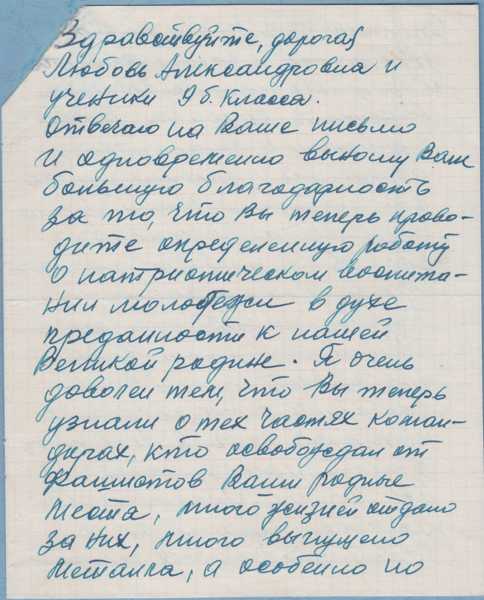 Здравствуйте, дорогая
Любовь Александровна и
ученики 9 б. класса.
Отвечаю на Ваше письмо
и одновременно выношу Вам
большую благодарность
за то, что Вы теперь прово-
дите определенную работу
о патриотическом воспита-
нии молодежи в духе
преданности к нашей
Великой родине. Я очень
доволен тем, что Вы теперь
узнали о тех частях коман-
дирах, кто освобождал от
фашистов Ваши родные
места, много жизней отдано
за них, много выпущено
металла, а особенно по